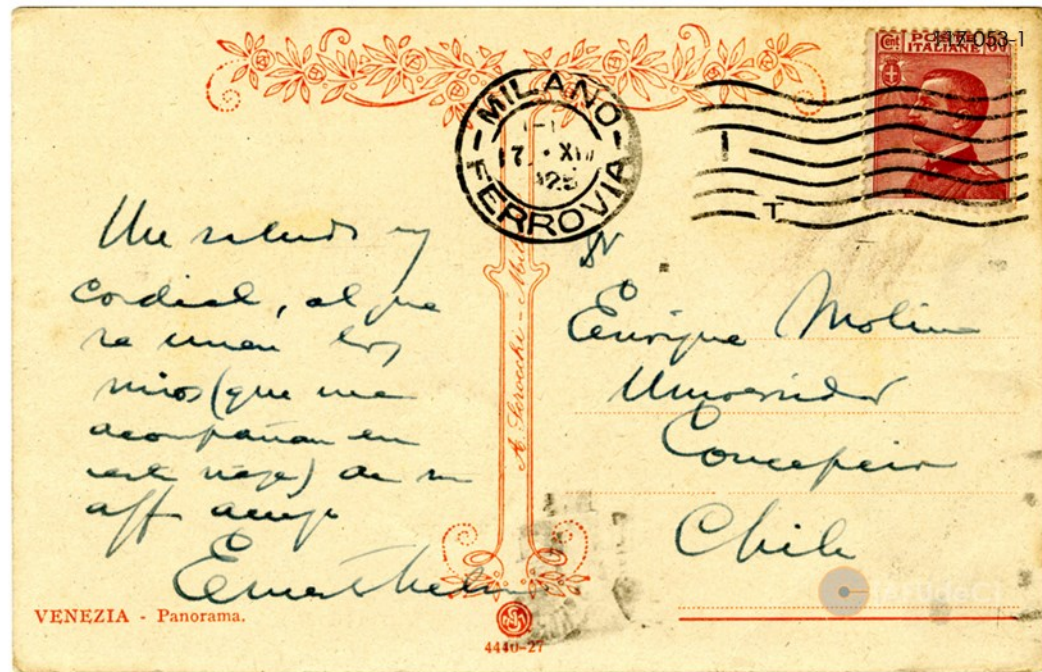 117-053-1
POSTE
ITALIANE
Cent 60
MILANO
17 · XII
925
FERROVIA
Un saludo muy
cordial, al que
se unen los
míos (que me
acompañan en
este viaje) de su
aff amigo
A. Scrocchi - Mil
Sr
Enrique Molina
Universidad
Concepción
Chile
VENEZIA - Panorama.
4440-27